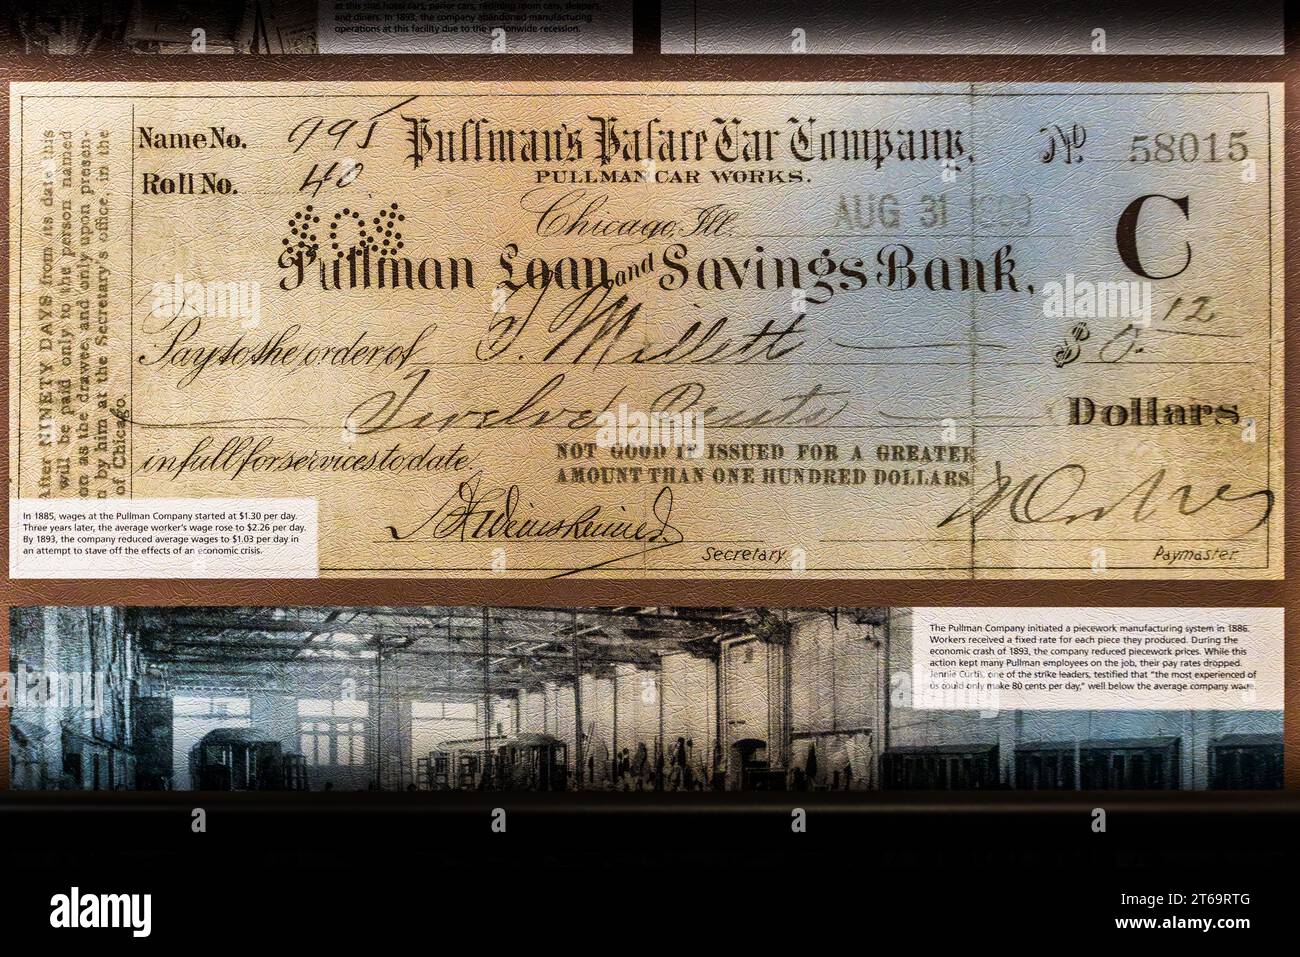 at this site hotel cars, parlor cars, reclining room cars, sleepers,
and diners. In 1893, the company abandoned manufacturing
operations at this facility due to the nationwide recession.
Name No. 995
Roll No. 40
Pullman's Palace Car Company,
PULLMAN CAR WORKS.
No. 58015
Chicago, Ill. AUG 31 1893
C
Pullman Loan and Savings Bank,
Pay to the order of T. Millett $ 0.12
Twelve Cents Dollars,
in full for services to date.
NOT GOOD IF ISSUED FOR A GREATER
AMOUNT THAN ONE HUNDRED DOLLARS
Secretary.
Paymaster.
After NINETY DAYS from its date this
will be paid only to the person named
on as the drawee, and only upon presen-
n by him at the Secretary's office, in the
of Chicago.
In 1885, wages at the Pullman Company started at $1.30 per day.
Three years later, the average worker's wage rose to $2.26 per day.
By 1893, the company reduced average wages to $1.03 per day in
an attempt to stave off the effects of an economic crisis.
The Pullman Company initiated a piecework manufacturing system in 1886.
Workers received a fixed rate for each piece they produced. During the
economic crash of 1893, the company reduced piecework prices. While this
action kept many Pullman employees on the job, their pay rates dropped.
Jennie Curtis, one of the strike leaders, testified that "the most experienced of
us could only make 80 cents per day," well below the average company wage.
a a a a
alamy
a
alamy
Image ID: 2T69RTG
www.alamy.com